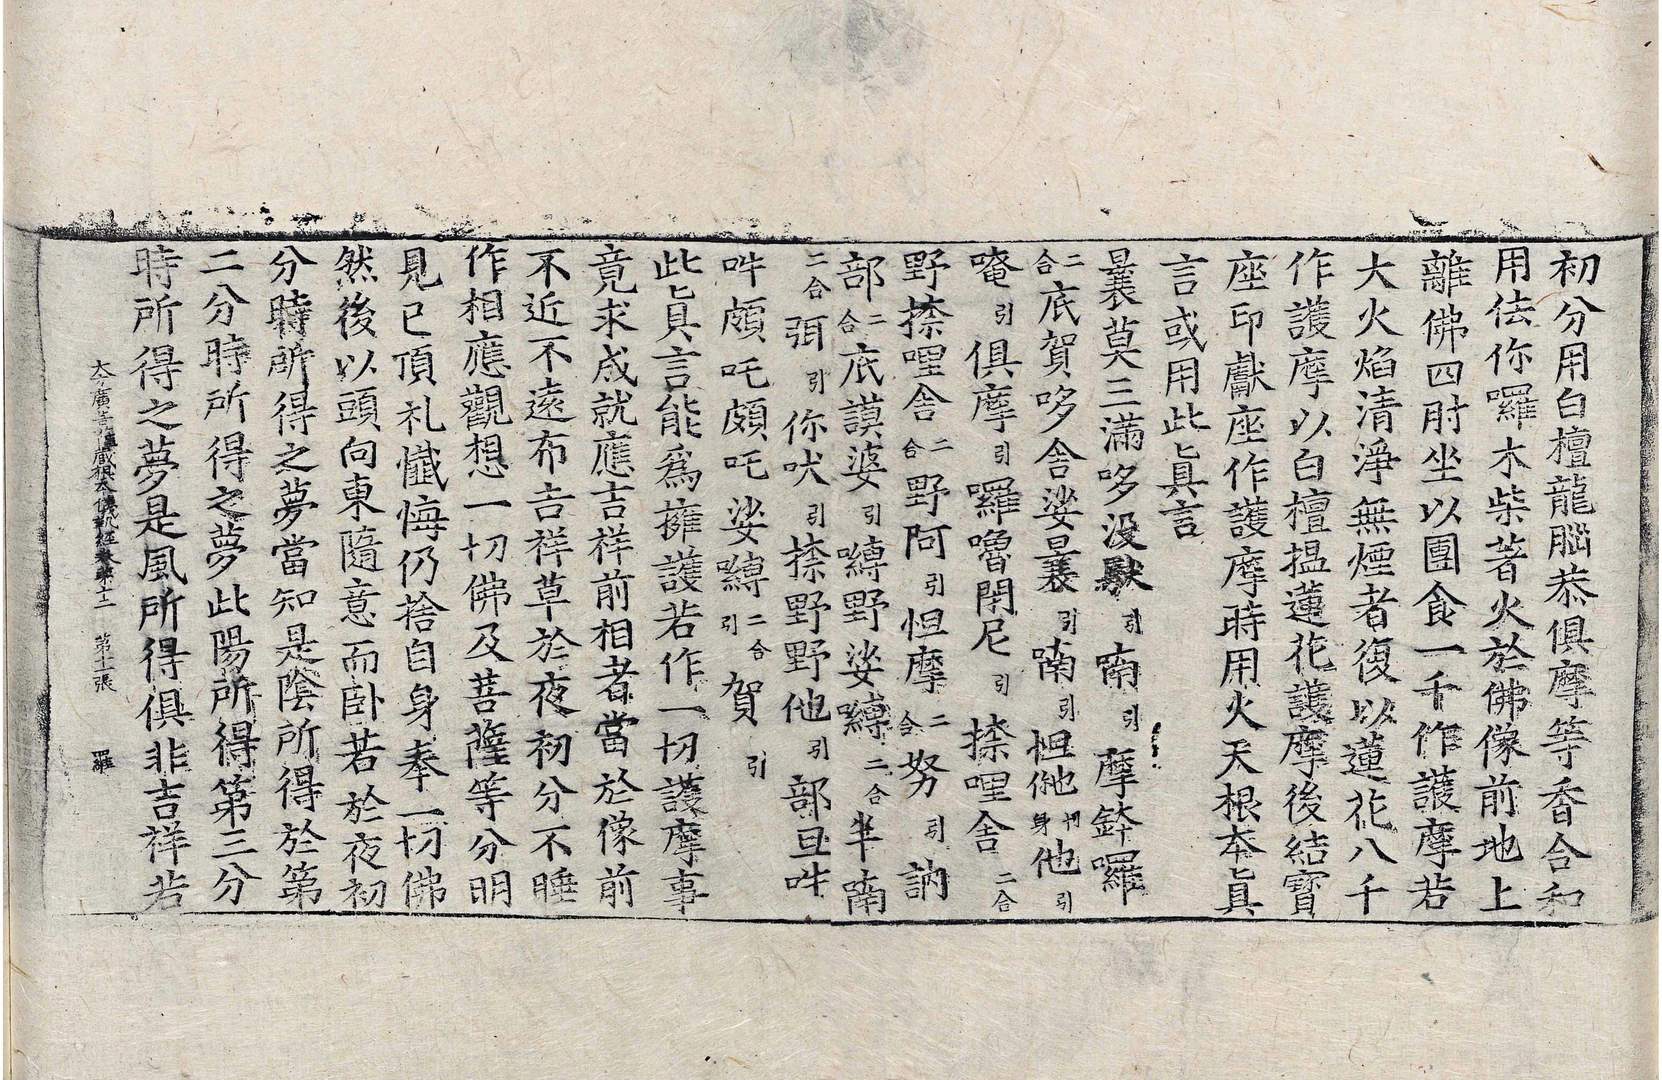 初分用白檀龍腦恭俱摩等香合和
用佉你囉木柴著火於佛像前地上
離佛四肘坐以團食一千作護摩若
大火焰清淨無煙者復以蓮花八千
作護摩以白檀揾蓮花護摩後結寶
座印獻座作護摩時用火天根夲真
言或用此真言
曩莫三滿哆没䭾引喃引摩鉢囉
二合底賀哆舍娑曩引喃引怛他引身他引
唵引俱摩引囉嚕閉尼引捺哩舍二合
野捺哩舍二合野阿引怛摩二合努引訥
部二合底謨婆引嚩野娑嚩二合半喃
二合弭引你吠引捺野野他引部旦吽
吽頗吒頗吒娑嚩二合引賀引
此真言能爲擁護若作一切護摩事
竟求成就應吉祥前相者當於像前
不近不遠布吉祥草於夜初分不睡
作相應觀想一切佛及菩薩等分明
見已頂礼懺悔仍捨自身奉一切佛
然後以頭向東隨意而卧若於夜初
分時所得之夢當知是陰所得於第
二分時所得之夢此陽所得第三分
時所得之夢是風所得俱非吉祥若
大方廣菩薩藏根夲儀軌經卷第十二 第十一張 羅